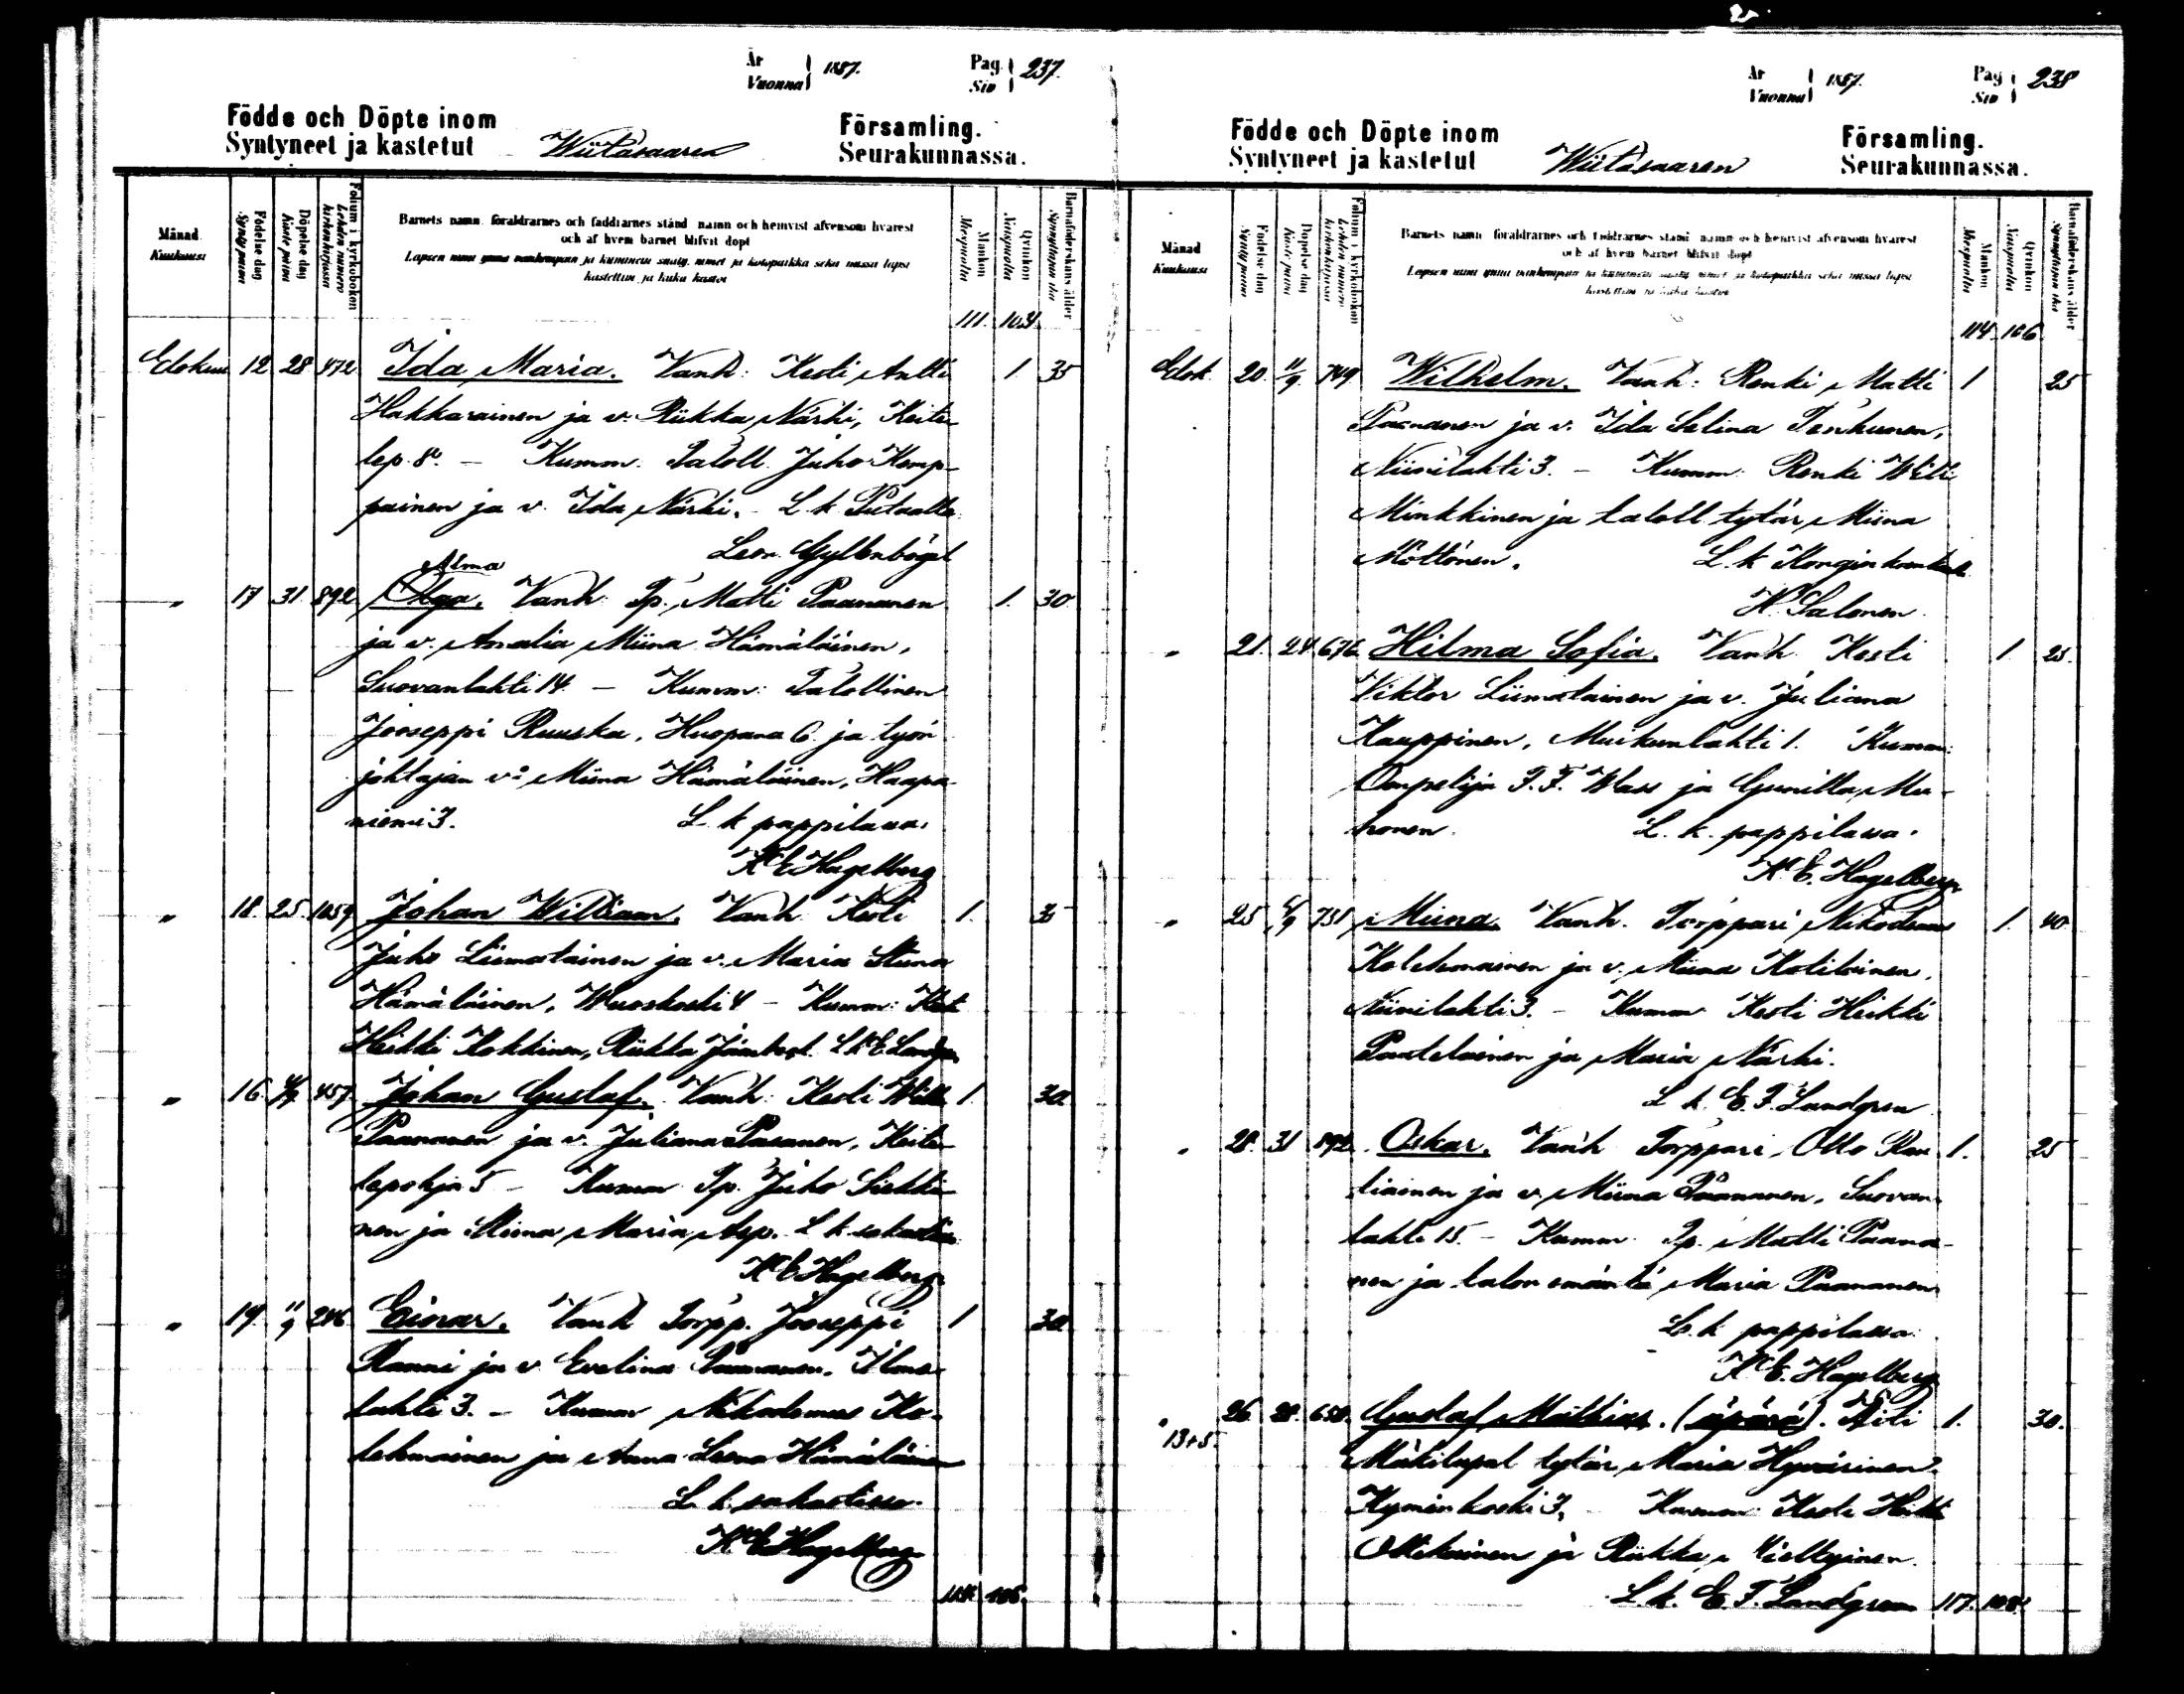 År
Vuonna
1887.
Pag.
Siv
237.
Födde och Döpte inom
Syntyneet ja kastetut
Wiitasaaren
Församling.
Seurakunnassa.
Månad
Kuukausi
Födelse dag
Synty päivä
Döpelse dag
Kaste päivä
Folium i kyrkoboken
Lehden numero
kirkonkirjassa
Barnets namn, föräldrarnes och faddrarnes stånd namn och hemvist afvensom hvarest
och af hvem barnet blifvit döpt
Lapsen nimi
kastettiin ja kuka kastoi
Mankön
Miespuolia
Qvinkön
Naispuolia
Barnaföderskans ålder
Synnyttäjän ikä
111. 103.
Elokuu 12 28 472 Ida Maria. Vanh: Kesti Antti 1 35
Hakkarainen ja v. Riikka Närhi, Keite
lep. 8. – Kumm. Taloll. Juho Kemp-
painen ja v. Ida Närhi. L. k.
Leon. Gyllenbögel
Alma
" 17 31 892 Olga. Vanh. Tp. Matti Paananen 1. 30
ja v. Amalia Miina Hämäläinen,
Suovanlahti 14. – Kumm: Talollinen
Jooseppi Ruuska, Huopana 6. ja työn
johtajan v: Miina Hämäläinen, Haapa
niemi 3. L. k pappilassa.
K E Hagelberg
" 18. 25. 1059 Johan William. Vanh Kesti 1. 35
Juho Liimatainen ja v. Maria Stiina
Hämäläinen, Wuoskoski 4 – Kumm: Kest
Heikki Kokkinen, Riikka
" 16 457 Johan Gustaf. Vanh: Kesti Wille 1. 30
Paananen ja v. Juliana Pasanen, Keite
lepohja 5 – Kumm Tp. Juho Siekki
nen ja Miina Maria Asp. L. k
K E Hagelberg
" 19. 11/9 246 Einar. Vanh Torpp. Jooseppi 1 30
Ranni ja v. Evelina Paananen, Ilmo
lahti 3. – Kumm Nikodemus Ko-
lehmainen ja Anna Leena Hämäläinen
L. k. sakastissa.
K E Hagelberg
106.
År
Vuonna
1887.
Pag
Siv
238
Födde och Döpte inom
Syntyneet ja kastetut
Wiitasaaren
Församling.
Seurakunnassa.
Månad
Kuukausi
Födelse dag
Synty päivä
Döpelse dag
Kaste päivä
Folium i kyrkoboken
Lehden numero
kirkonkirjassa
Barnets namn föräldrarnes och faddrarnes stånd namn och hemvist afvensom hvarest
och af hvem barnet blifvit döpt
Mankön
Miespuolia
Qvinkön
Naispuolia
Barnaföderskans ålder
Synnyttäjän ikä
114. 106
Elok. 20. 11/9 749 Wilhelm. Vanh: Renki Matti 1 25
Paananen ja v. Ida Selina Tenhunen,
Niinilahti 3. – Kumm: Renki Wille
Minkkinen ja taloll. tytär Miina
Möttönen. L. k Konginkankaalla
K. Salonen
" 21. 24. 676 Hilma Sofia. Vanh Kesti 1. 25.
Viktor Liimatainen ja v. Juliana
Kauppinen, Muikunlahti 1. Kumm:
Ompelija F. F. Wass ja Gunilla Mu-
honen. L. k. pappilassa.
K. E. Hagelberg
" 25 731 Miina. Vanh. Torppari Nikodemus 1. 40
Kolehmainen ja v. Miina Kotilainen,
Niinilahti 3. – Kumm Kesti Heikki
Paatelainen ja Maria Närhi.
L. k. E. F. Landgren
" 28. 31 892. Oskar. Vanh Torppari Otto Rau 1. 25
tiainen ja v. Miina Paananen, Suovan-
lahti 15. – Kumm. Tp. Matti Paana-
nen ja talon emäntä Maria Paananen.
L. k. pappilassa.
K. E. Hagelberg
" 26 28. 650. Gustaf Mathias. (äpärä). Äiti 1. 30.
13+5.
Mäkitupal. tytär Maria Hyvärinen
Kyminkoski 3, – Kumm: Kesti Heikki
Ollikainen ja Riikka
L. k. E. F. Landgren 117. 108.